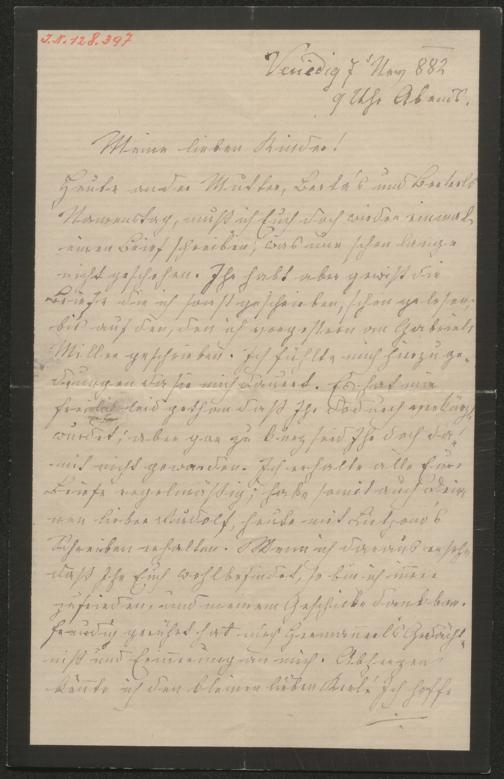 J.N. 128.397
Venedig 7' Nov 882
9 Uhr Abends.
Meine lieben Kinder!
Heute an der Mutter, Berta's und Berterls
Namenstag, muß ich Euch doch wieder einmal
einen Brief schreiben, was nun schon lange
nicht geschehen. Ihr habt aber gewiß die
Briefe die ich sonst geschrieben, schon gelesen,
bis auf den, den ich vorgestern an Gabriele
Miller geschrieben. Ich fühlte mich hinzu ge-
drungen da sie mich dauert. Es hat mir
freilich leid gethan daß Ihr dadurch verkürzt
wurdet; aber gar zu kurz seid Ihr doch da-
mit nicht geworden. Ich erhalte alle Eure
Briefe regelmässig; habe somit auch Dein
lieber Rudolf, heute mit
Schreiben erhalten. Wenn ich daraus ersehe
daß Ihr Euch wohlbefindet, so bin ich immer
zufrieden, und meinem Geschicke dankbar.
Freudig gerührt hat mich Hermannerl's Gedächt-
niß und Erinnerung an mich. Abherzen
könnte ich den kleinen lieben Kerl! Ich hoffe